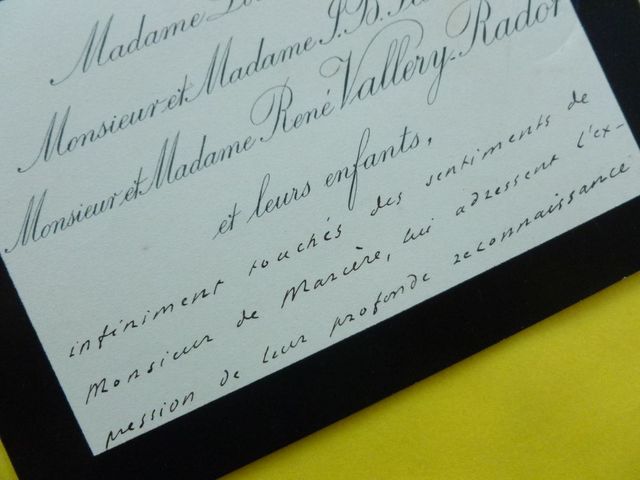 Madame
Monsieur et Madame J. B.
Monsieur et Madame René Vallery-Radot
et leurs enfants,
infiniment touchés des sentiments de
Monsieur de Marcère, lui adressent l'ex-
pression de leur profonde reconnaissance